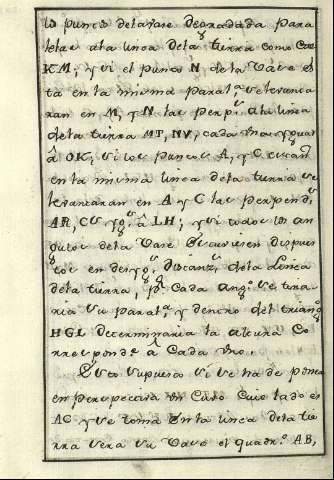 los puntos dela vase degradada para
lelas ala linea dela tierra como
KM; y si el punto N dela vase es
ta en la misma paral.ª se levanta
ran en M, y N las perp.s ala linea
dela tierra MT, NV, cada una ygual
â OK; si los puntos A, y C estan
en la misma linea dela tierra se
levantaran en A y C las perpend.s
AR, CS yg.s â LH; y si todos los an
gulos dela vase estuviesen dispues
tos en desyg.s distanz.s dela linea
dela tierra, p.r cada ang.o se tira
ria su paral.a y dentro del triang.o
HGL determinaria la altura co
rrespond.e â cada uno.
Esto supuesto si se ha de poner
en perspectiva un cubo cuio lado es
AC y se toma en la linea dela tie
rra sera su vase el quadr.o AB,